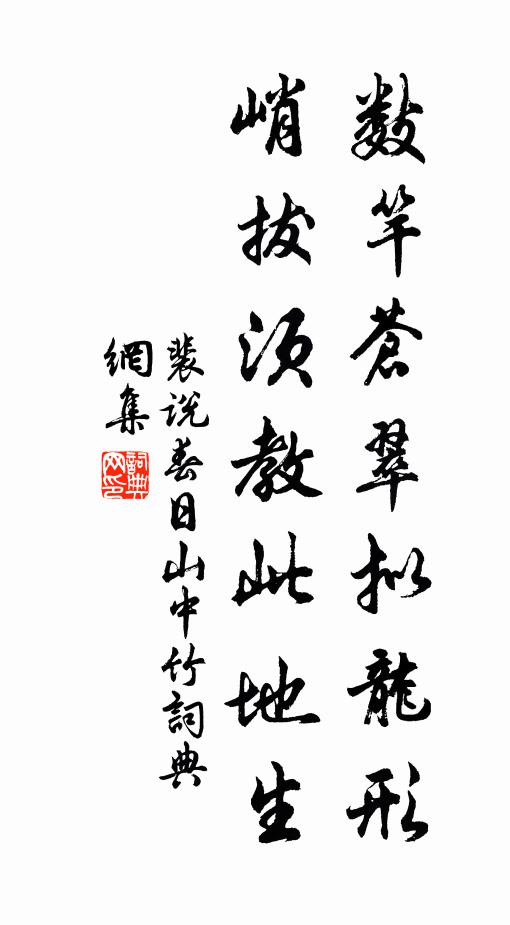 数竿蒼翠拟龍形
峭拔须教此地生
裴说春日山中竹詞典
網集
詞典
网印